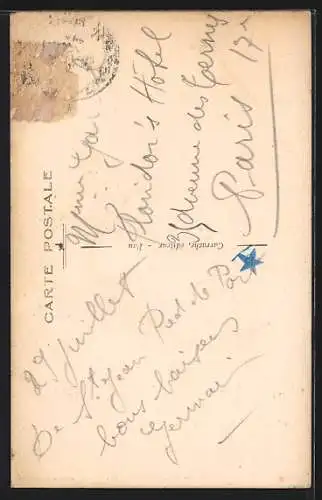 CARTE POSTALE
29 juillet
De St Jean Pied de Port
bons baisers
Germain
Carrache, éditeur - Pau
Mme
Floridor's Hôtel
Avenue des Ternes
Paris 17e